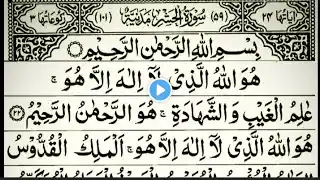 اٰیَاتُهَا ٢٤ (٥٩) سُوْرَةُ الْحَشْرِ مَدَنِیَّةٌ (١٠١) رُكُوْعَاتُهَا ٣
بِسْمِ اللّٰهِ الرَّحْمٰنِ الرَّحِیْمِ
هُوَ اللّٰهُ الَّذِیْ لَاۤ اِلٰهَ اِلَّا هُوَ ۚ
عٰلِمُ الْغَیْبِ وَالشَّهَادَةِ ۚ هُوَ الرَّحْمٰنُ الرَّحِیْمُ ٢٢
هُوَ اللّٰهُ الَّذِیْ لَاۤ اِلٰهَ اِلَّا هُوَ ۚ اَلْمَلِكُ الْقُدُّوْسُ